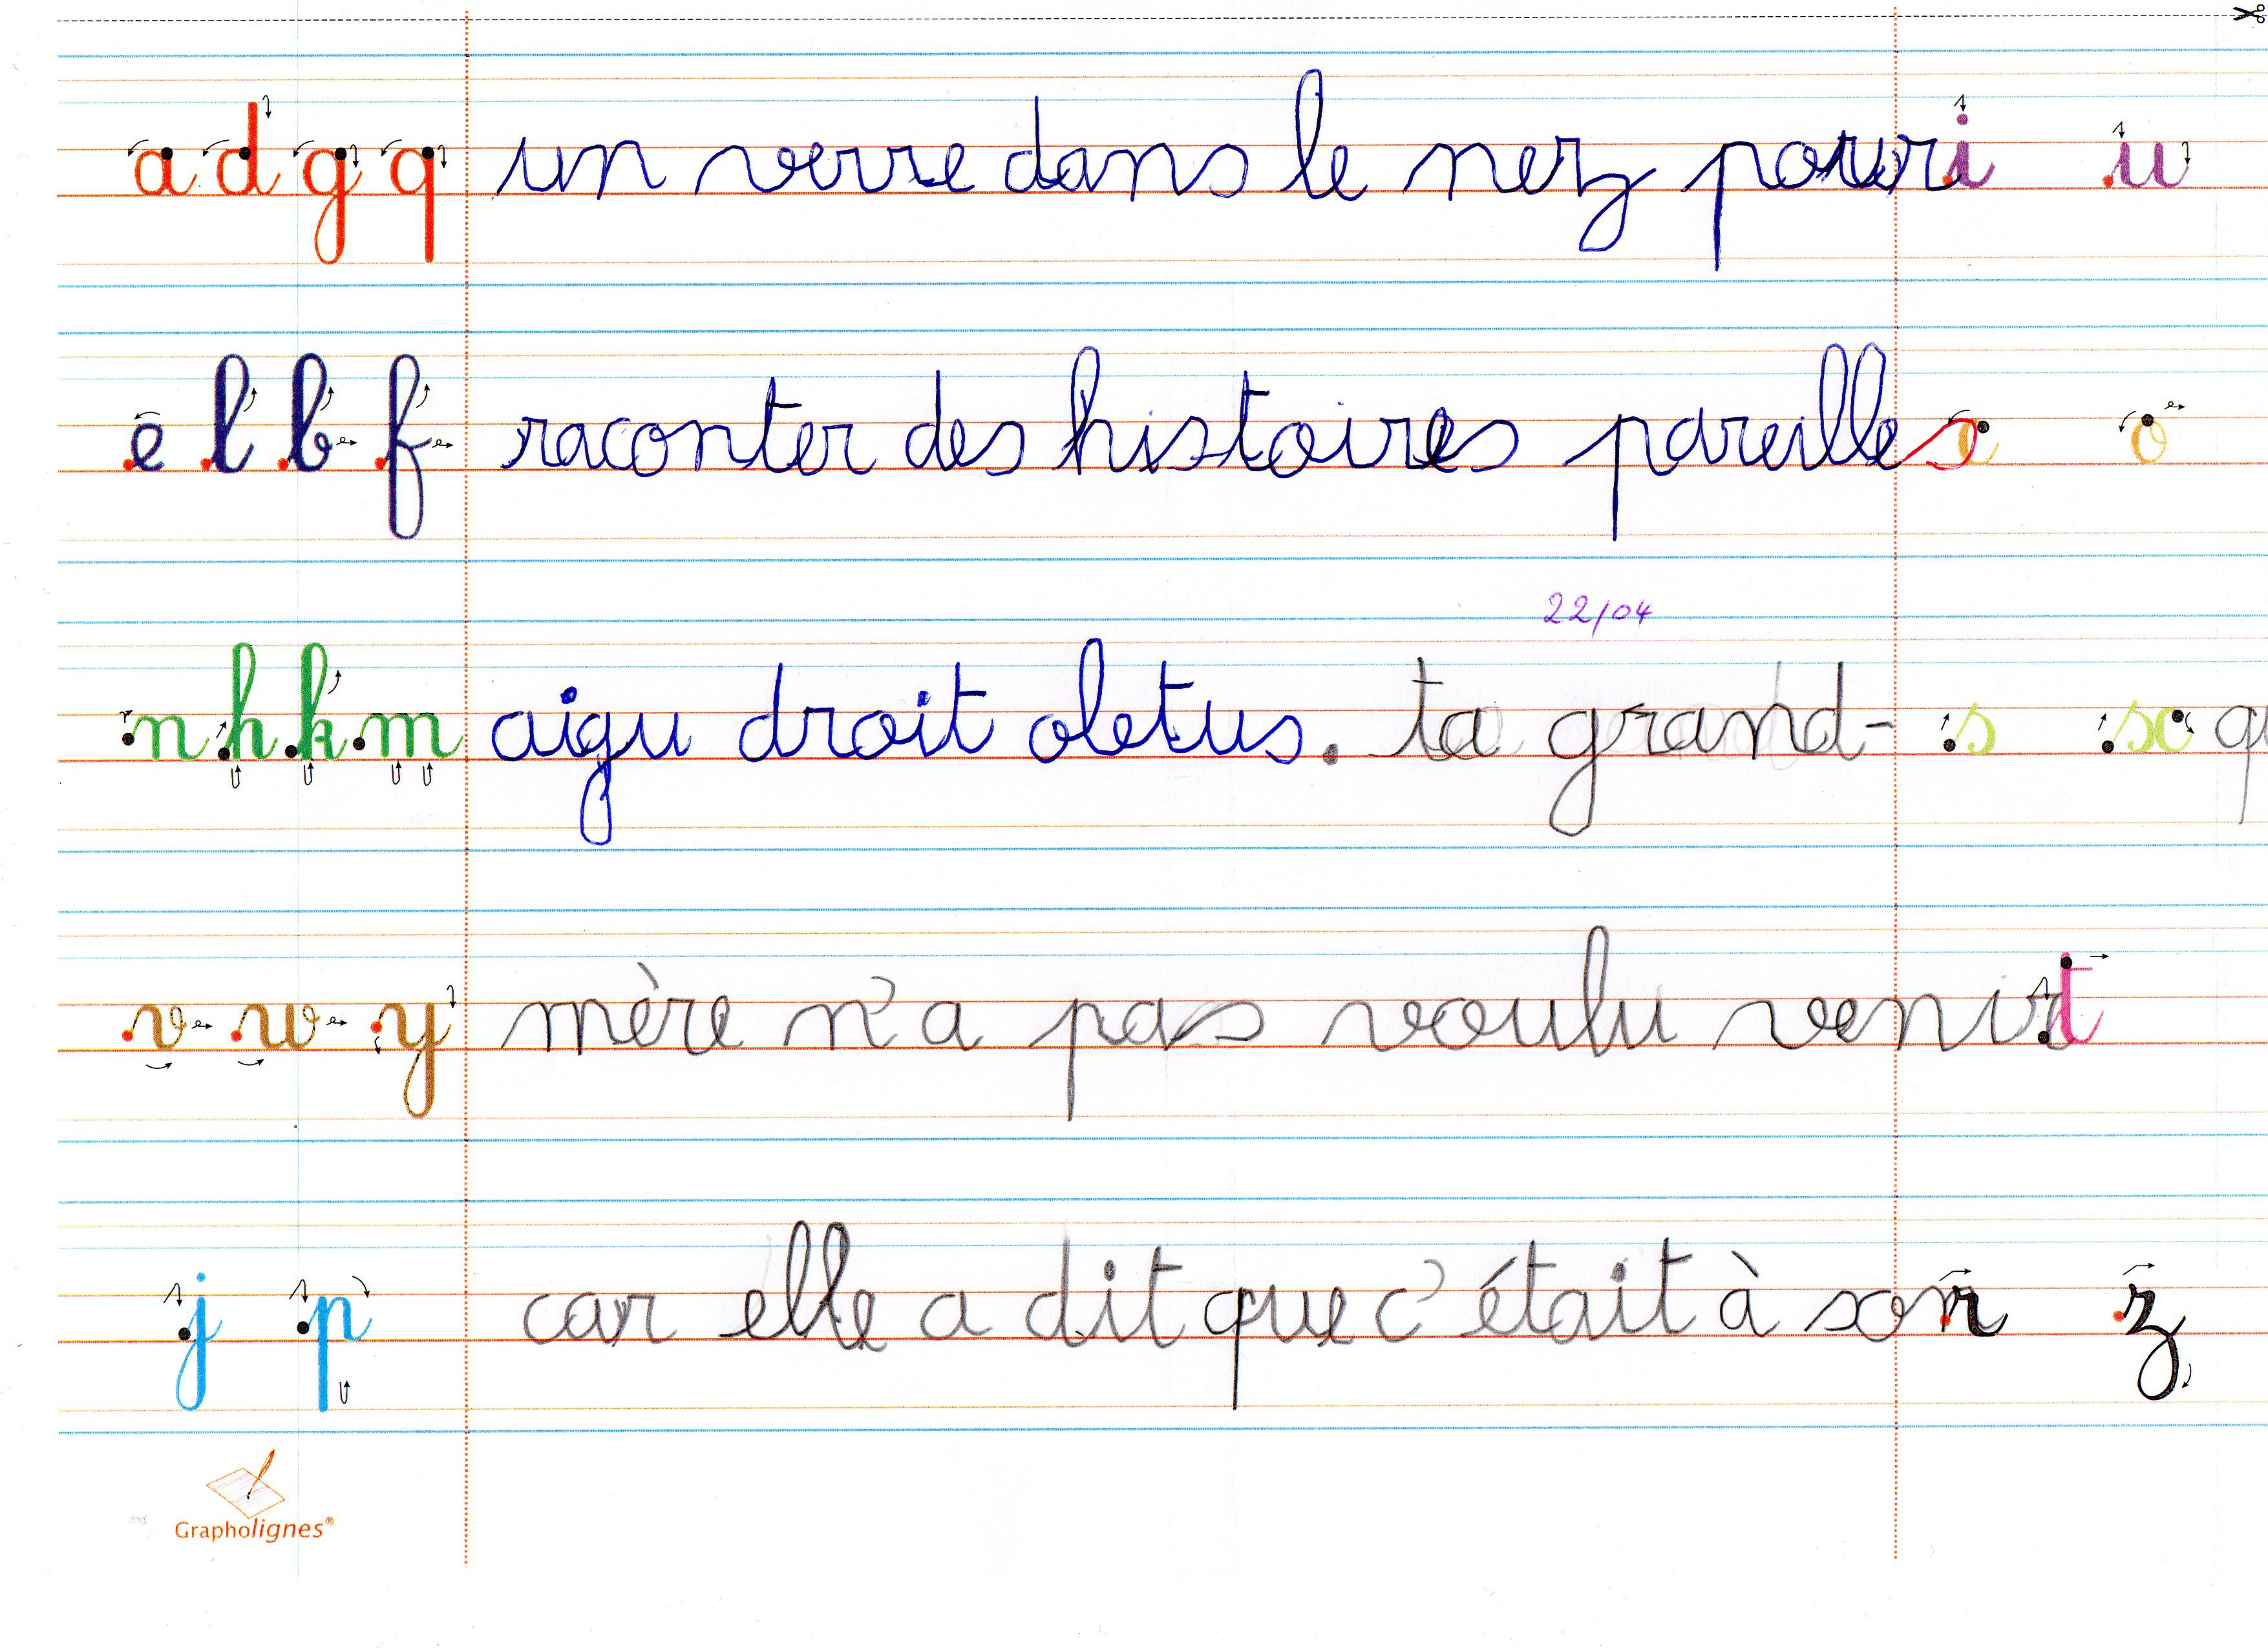 a d g q un verre dans le nez pour i u
e l b f raconter des histoires pareilles a o
22/04
n h k m aigu droit oletus. ta grand- s sc q
v w y mère n'a pas voulu venir t
j p car elle a dit que c'était à son r z
Grapholignes®